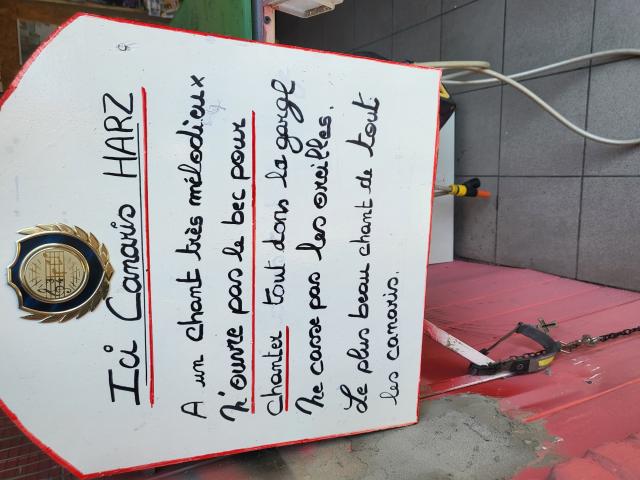 Ici Canaris HARZ
A un chant très mélodieux
N'ouvre pas le bec pour
chanter tout dans la gorge
Ne casse pas les oreilles.
Le plus beau chant de tout
les canaris.